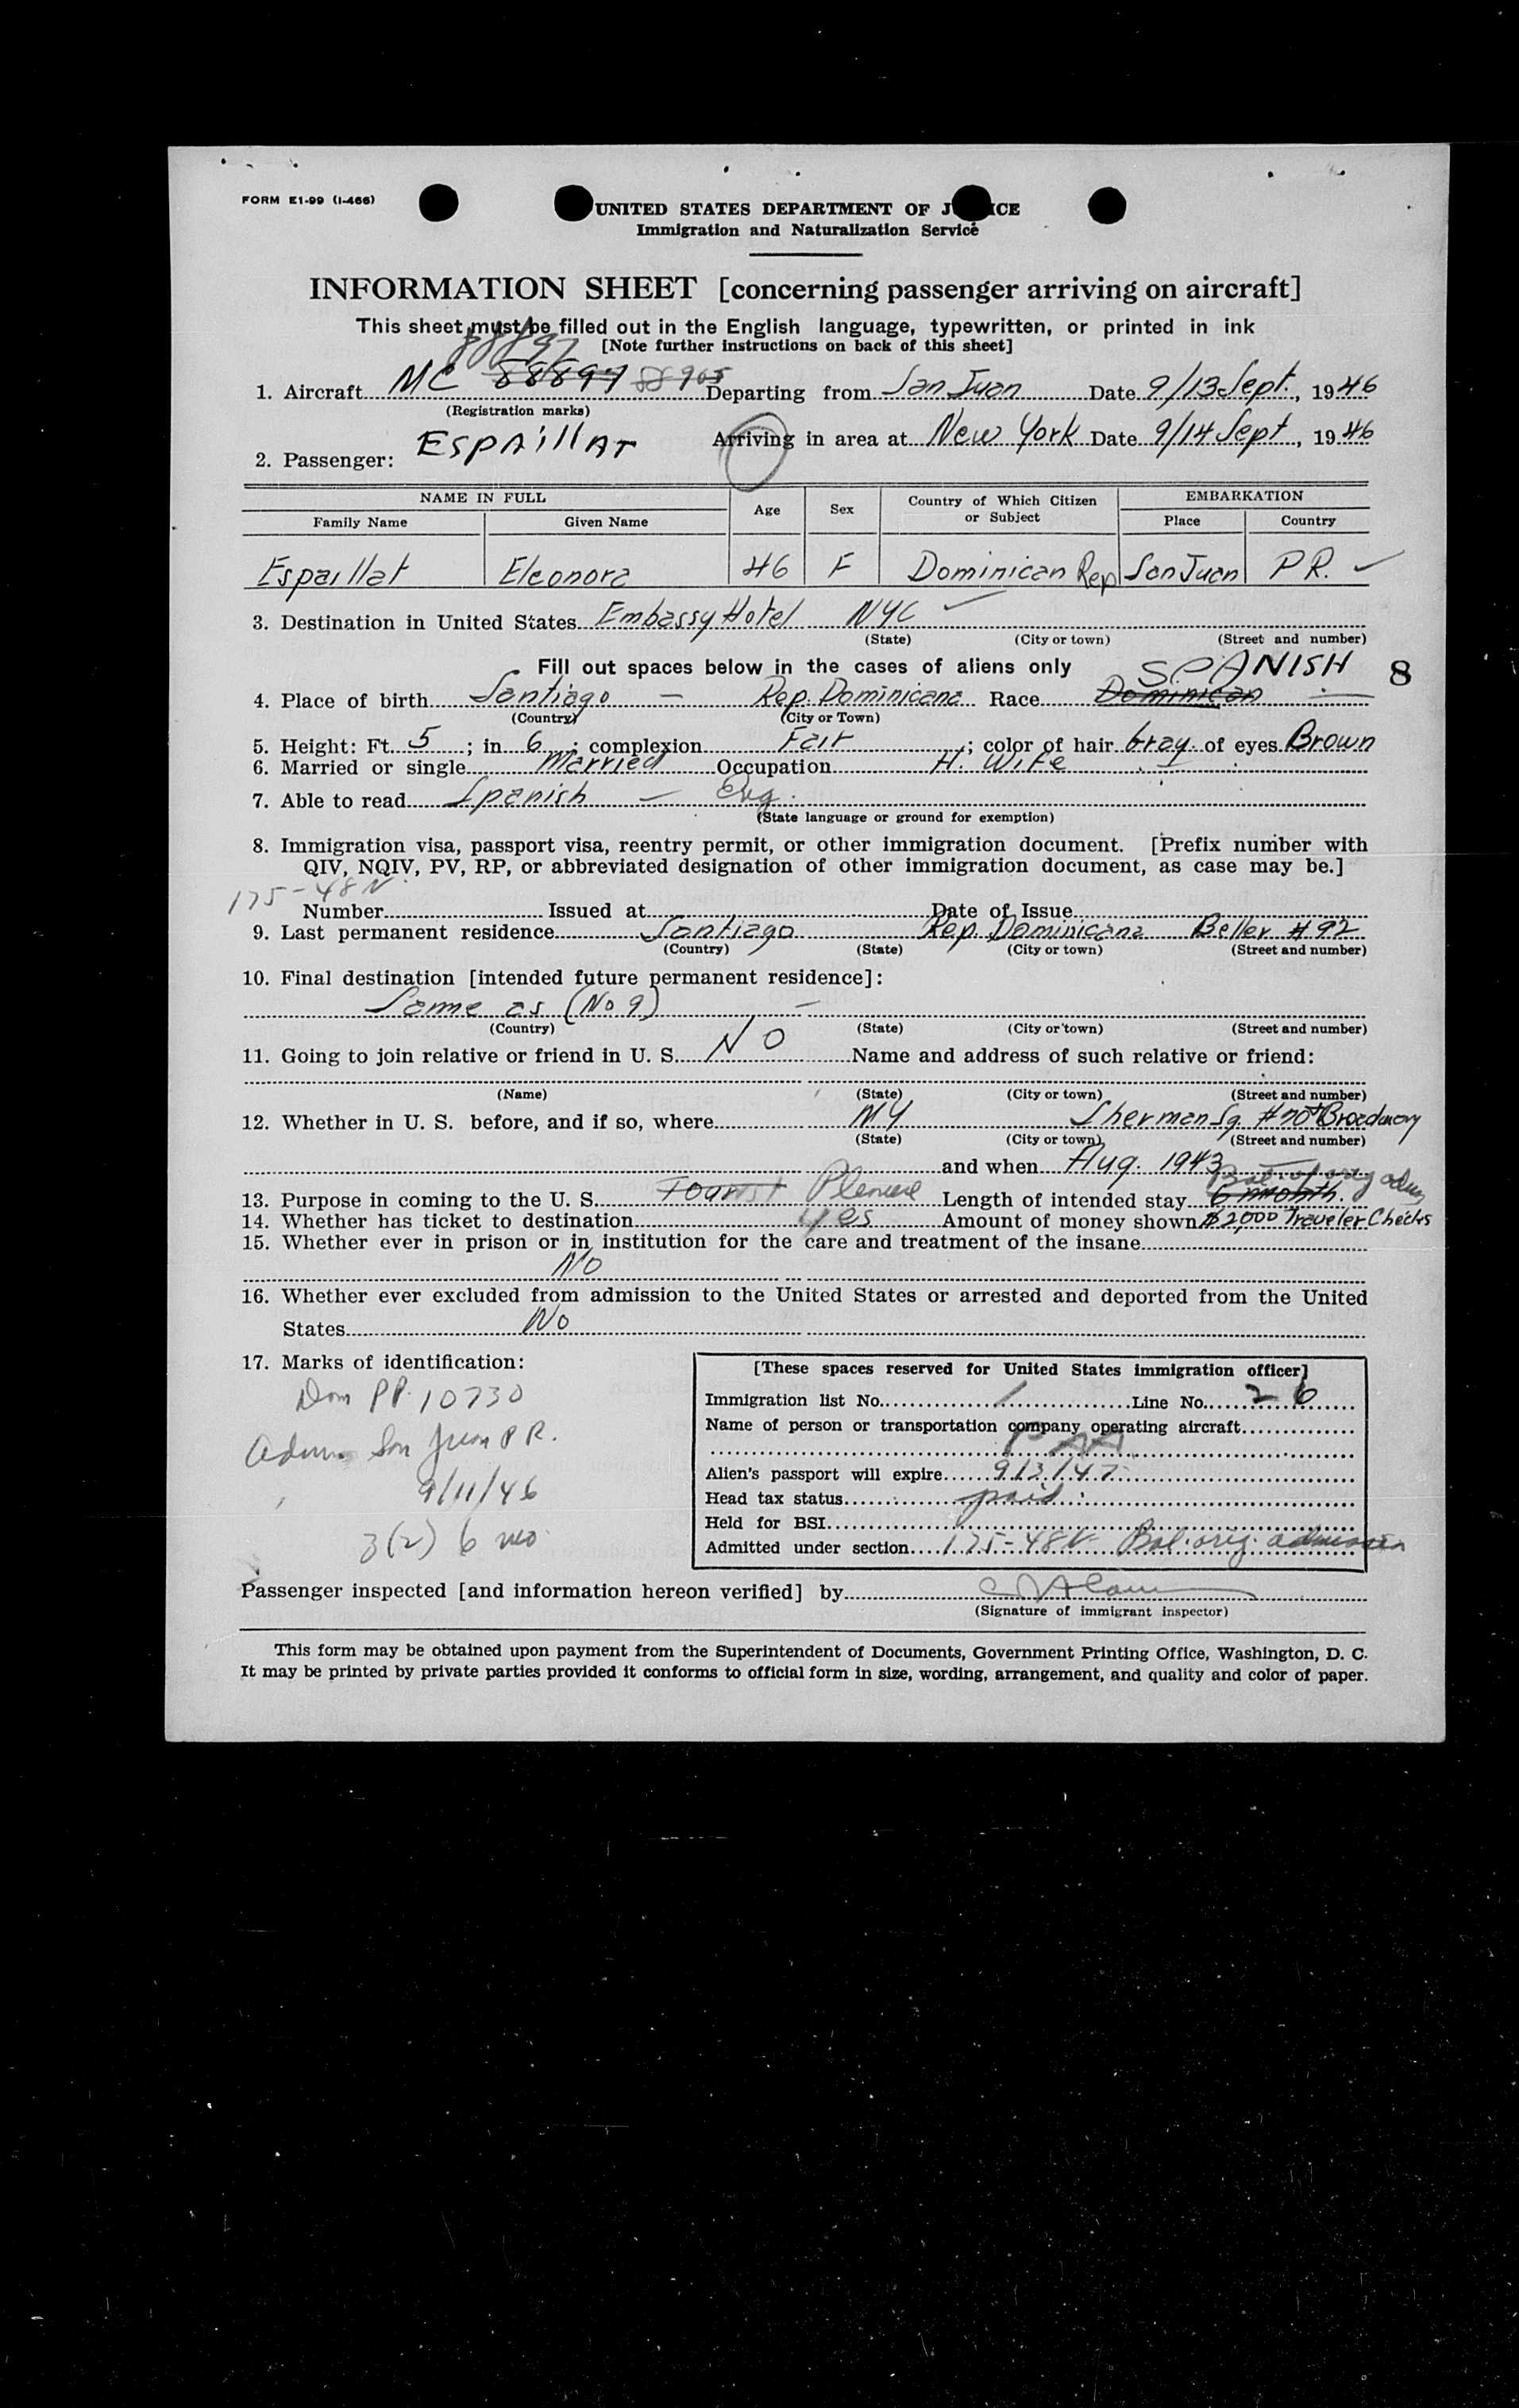 FORM E1-99 (I-466)
UNITED STATES DEPARTMENT OF J ICE
Immigration and Naturalization Service
INFORMATION SHEET [concerning passenger arriving on aircraft]
This sheet must be filled out in the English language, typewritten, or printed in ink
[Note further instructions on back of this sheet]
88897
1. Aircraft MC 88897 88905 Departing from San Juan Date 9/13 Sept., 1946
(Registration marks)
Arriving in area at New York Date 9/14 Sept, 1946
2. Passenger: ESPAillAT
NAME IN FULL Age Sex Country of Which Citizen or Subject EMBARKATION
Family Name Given Name Place Country
Espaillat Eleonora 46 F Dominican Rep San Juan PR.
3. Destination in United States Embassy Hotel NYC
(State) (City or town) (Street and number)
Fill out spaces below in the cases of aliens only SPANISH 8
4. Place of birth Santiago — Rep. Dominicana Race Dominican
(Country) (City or Town)
5. Height: Ft. 5; in 6; complexion Fair; color of hair Gray of eyes Brown
6. Married or single Married Occupation H. Wife
7. Able to read Spanish — Eng.
(State language or ground for exemption)
8. Immigration visa, passport visa, reentry permit, or other immigration document. [Prefix number with
QIV, NQIV, PV, RP, or abbreviated designation of other immigration document, as case may be.]
175-48N
Number Issued at Date of Issue
9. Last permanent residence Santiago Rep. Dominicana Beller #92
(Country) (State) (City or town) (Street and number)
10. Final destination [intended future permanent residence]:
Same as (No 9) —
(Country) (State) (City or town) (Street and number)
11. Going to join relative or friend in U. S. NO Name and address of such relative or friend:
(Name) (State) (City or town) (Street and number)
12. Whether in U. S. before, and if so, where NY Sherman Sq. #70+Broadway
(State) (City or town) (Street and number)
and when Aug. 1943
Bal. of orig adm
13. Purpose in coming to the U. S. Tourist Pleasure Length of intended stay 6 month.
14. Whether has ticket to destination yes Amount of money shown $2,000 Traveler Checks
15. Whether ever in prison or in institution for the care and treatment of the insane
No
16. Whether ever excluded from admission to the United States or arrested and deported from the United
States No
17. Marks of identification:
Dom PP. 10730
Adm. San Juan P R.
9/11/46
3(2) 6 mo
[These spaces reserved for United States immigration officer]
Immigration list No. 1 Line No. 26
Name of person or transportation company operating aircraft
PAA
Alien's passport will expire 9/3/47
Head tax status paid
Held for BSI
Admitted under section 175-48N Bal. orig. admission
Passenger inspected [and information hereon verified] by
(Signature of immigrant inspector)
This form may be obtained upon payment from the Superintendent of Documents, Government Printing Office, Washington, D. C.
It may be printed by private parties provided it conforms to official form in size, wording, arrangement, and quality and color of paper.